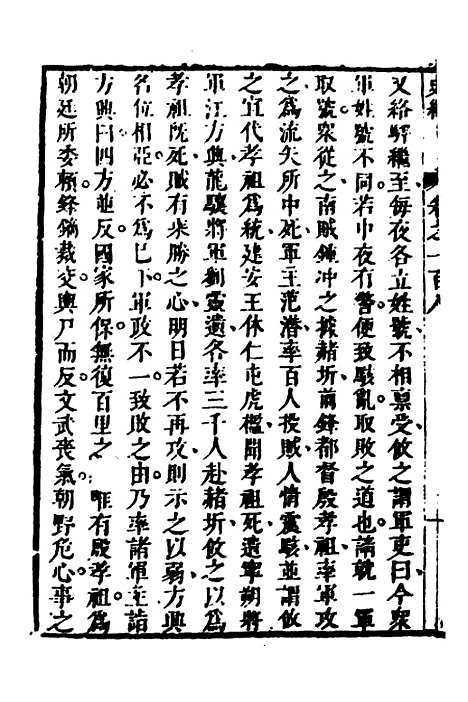 又絡驛繼至每夜各立姓號不相稟受攸之謂軍吏曰今衆
軍姓號不同若中夜有警便致駭亂取敗之道也請就一軍
取號衆從之南賊鍾冲之據赭圻前鋒都督殷孝祖率軍攻
之爲流矢所中死軍主范潛率百人投賊人情震駭並謂攸
之宜代孝祖爲統建安王休仁屯虎檻聞孝祖死遣寧朔將
軍江方興龍驤將軍劉靈遺各率三千人赴赭圻攸之以爲
孝祖既死賊有乘勝之心明日若不再攻則示之以弱方興
名位相亞必不爲己下軍政不一致敗之由乃率諸軍主詣
方興曰四方並反國家所保無復百里之 唯有殷孝祖爲
朝廷所委賴鋒鏑裁交輿尸而反文武喪氣朝野危心事之
卷之一百八